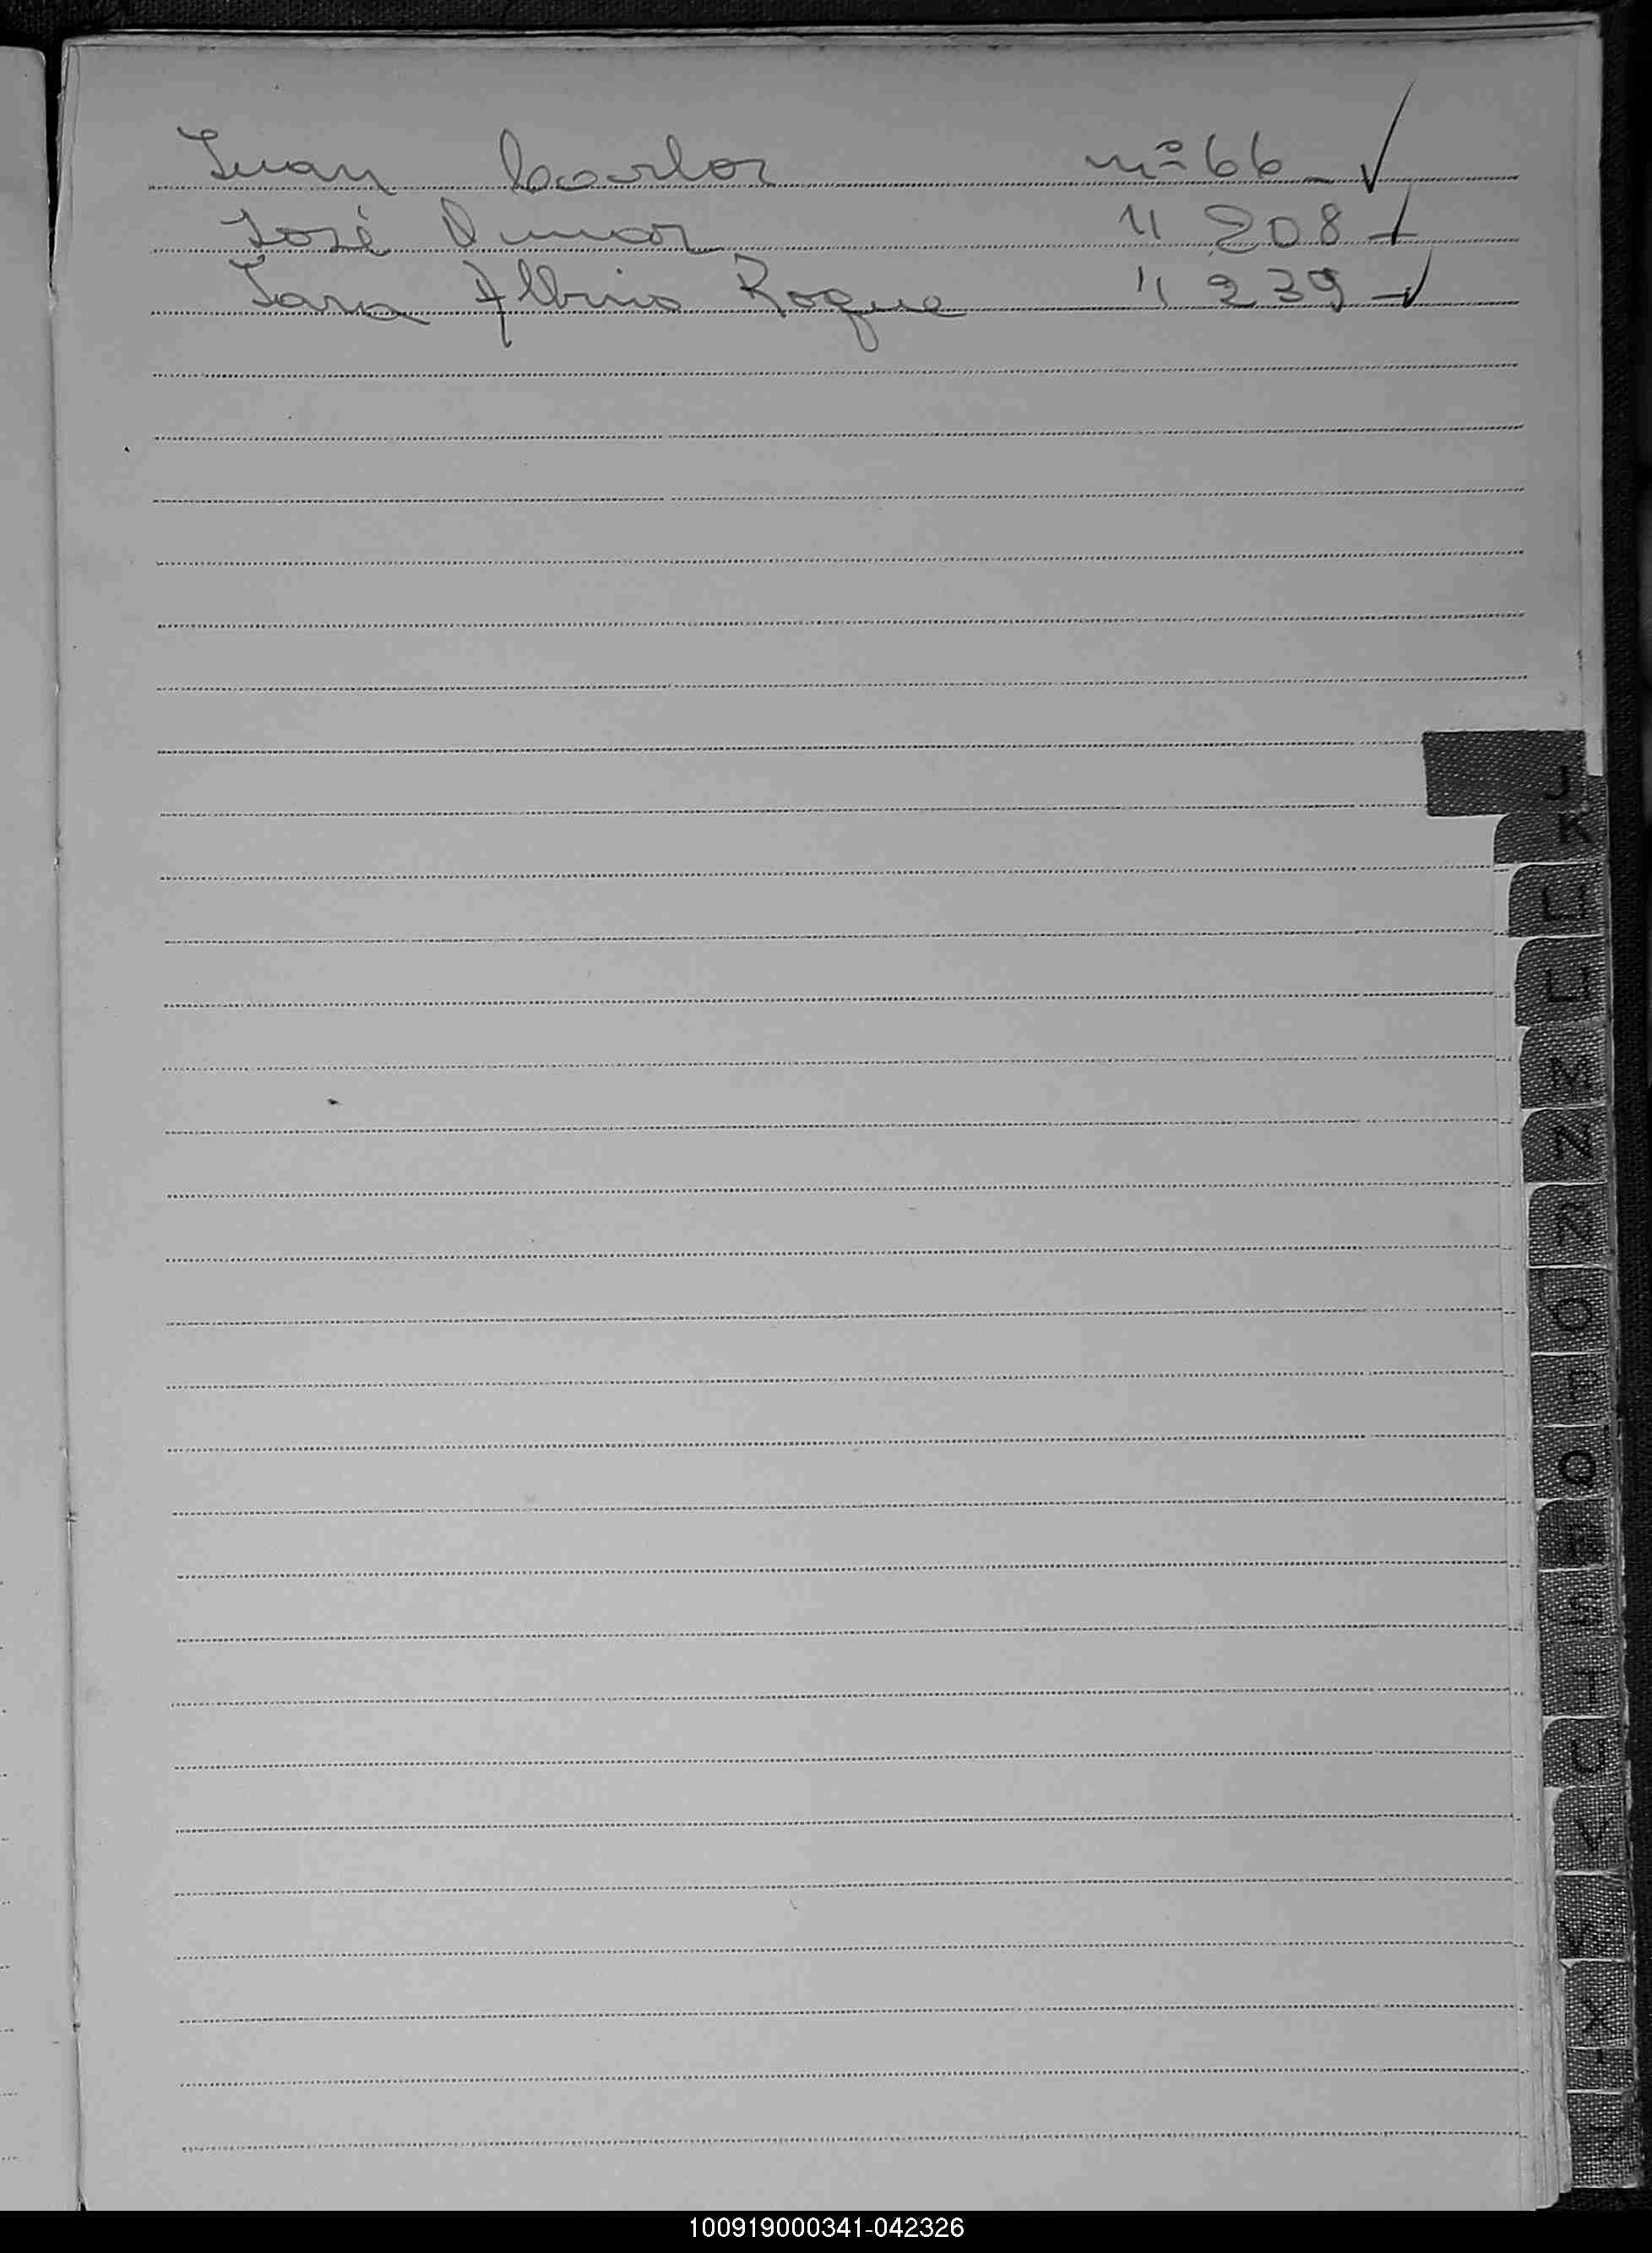 Juan Carlos nº 66 - ✓
José Dumar " 208 -
Jara Albino Roque " 239 - ✓
J
K
L
LL
M
N
Ñ
O
P
Q
R
S
T
U
V
X
100919000341-042326